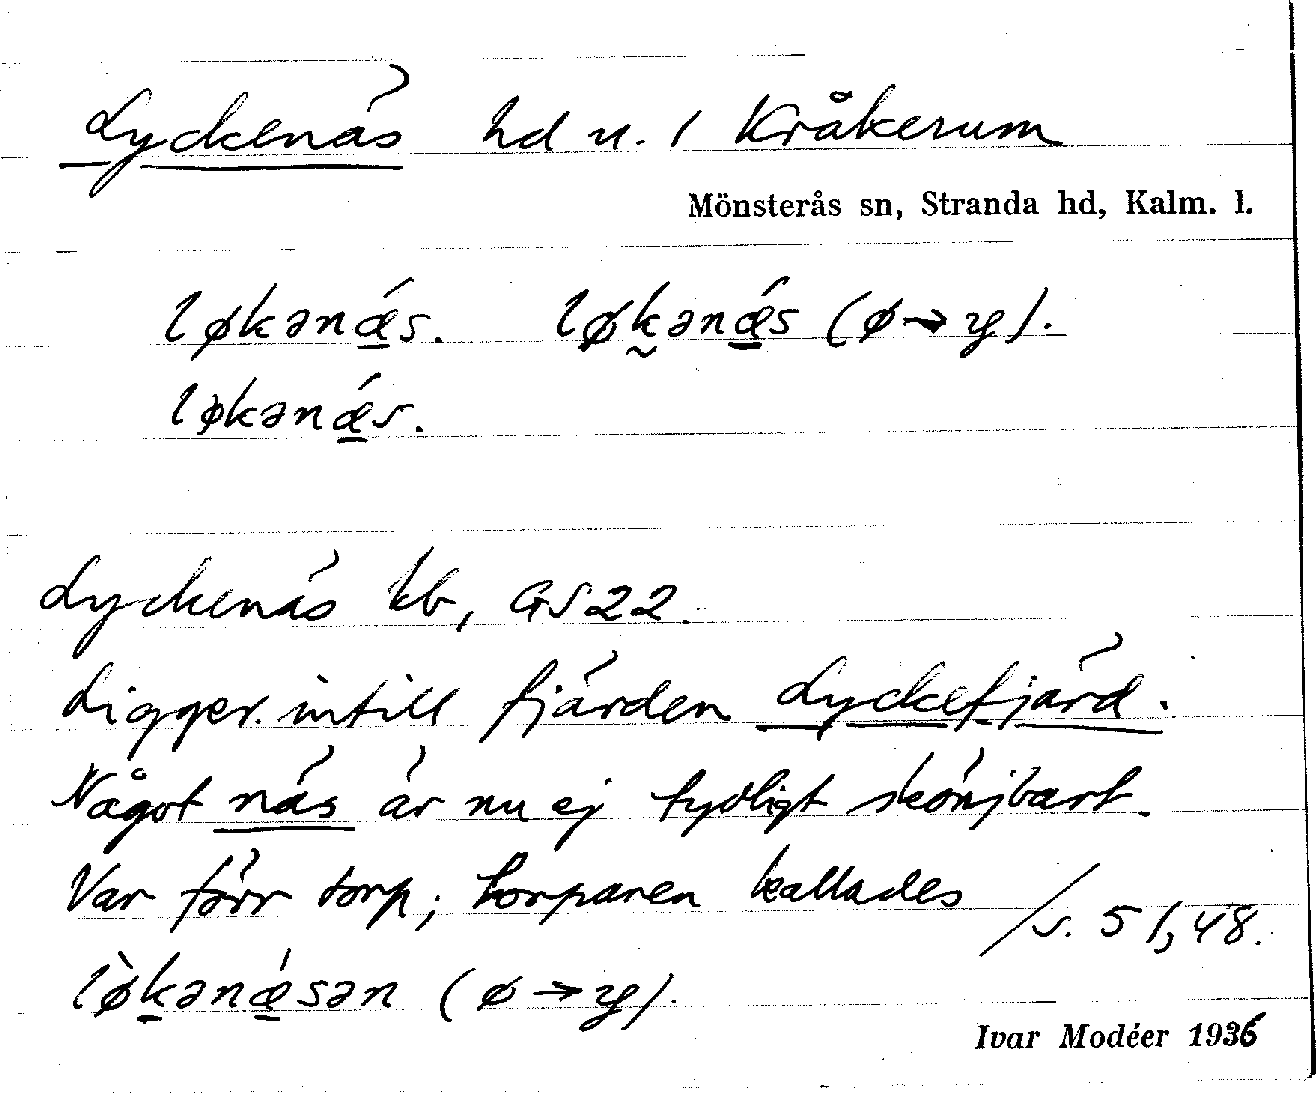 Lyckenäs hd u. / Kråkerum
Mönsterås sn, Stranda hd, Kalm. l.
løkənǽs. løkənǽs (ø→y).
løkənǽs.
Lyckenäs kb, GS22.
Ligger intill fjärden Lyckefjärd.
Något näs är nu ej tydligt skönjbart.
Var förr torp; torparen kallades
/s. 51,48.
lø̀kənǽsən (ø→y).
Ivar Modéer 1936